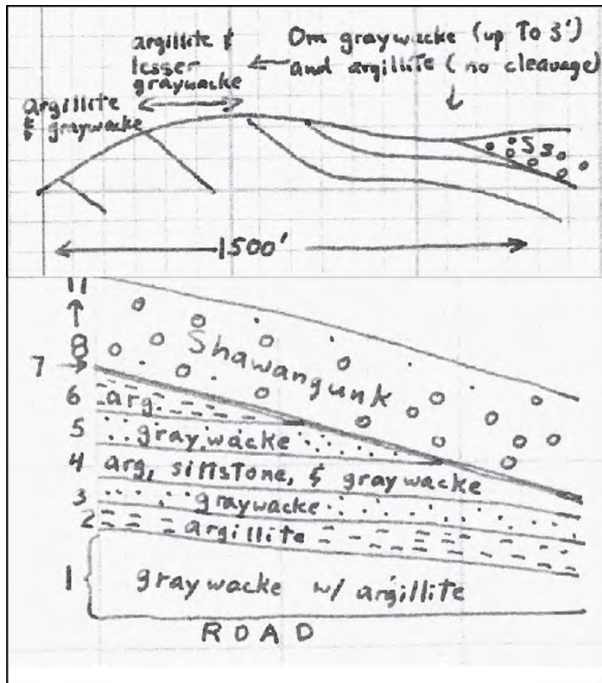 argillite &
lesser
graywacke
Om graywacke (up To 3')
and argillite (no cleavage)
argillite
& graywacke
Ss
1500'
11
8
Shawangunk
7
6 arg.
5 graywacke
4 arg, siltstone, & graywacke
3 graywacke
2 argillite
1 graywacke w/ argillite
ROAD